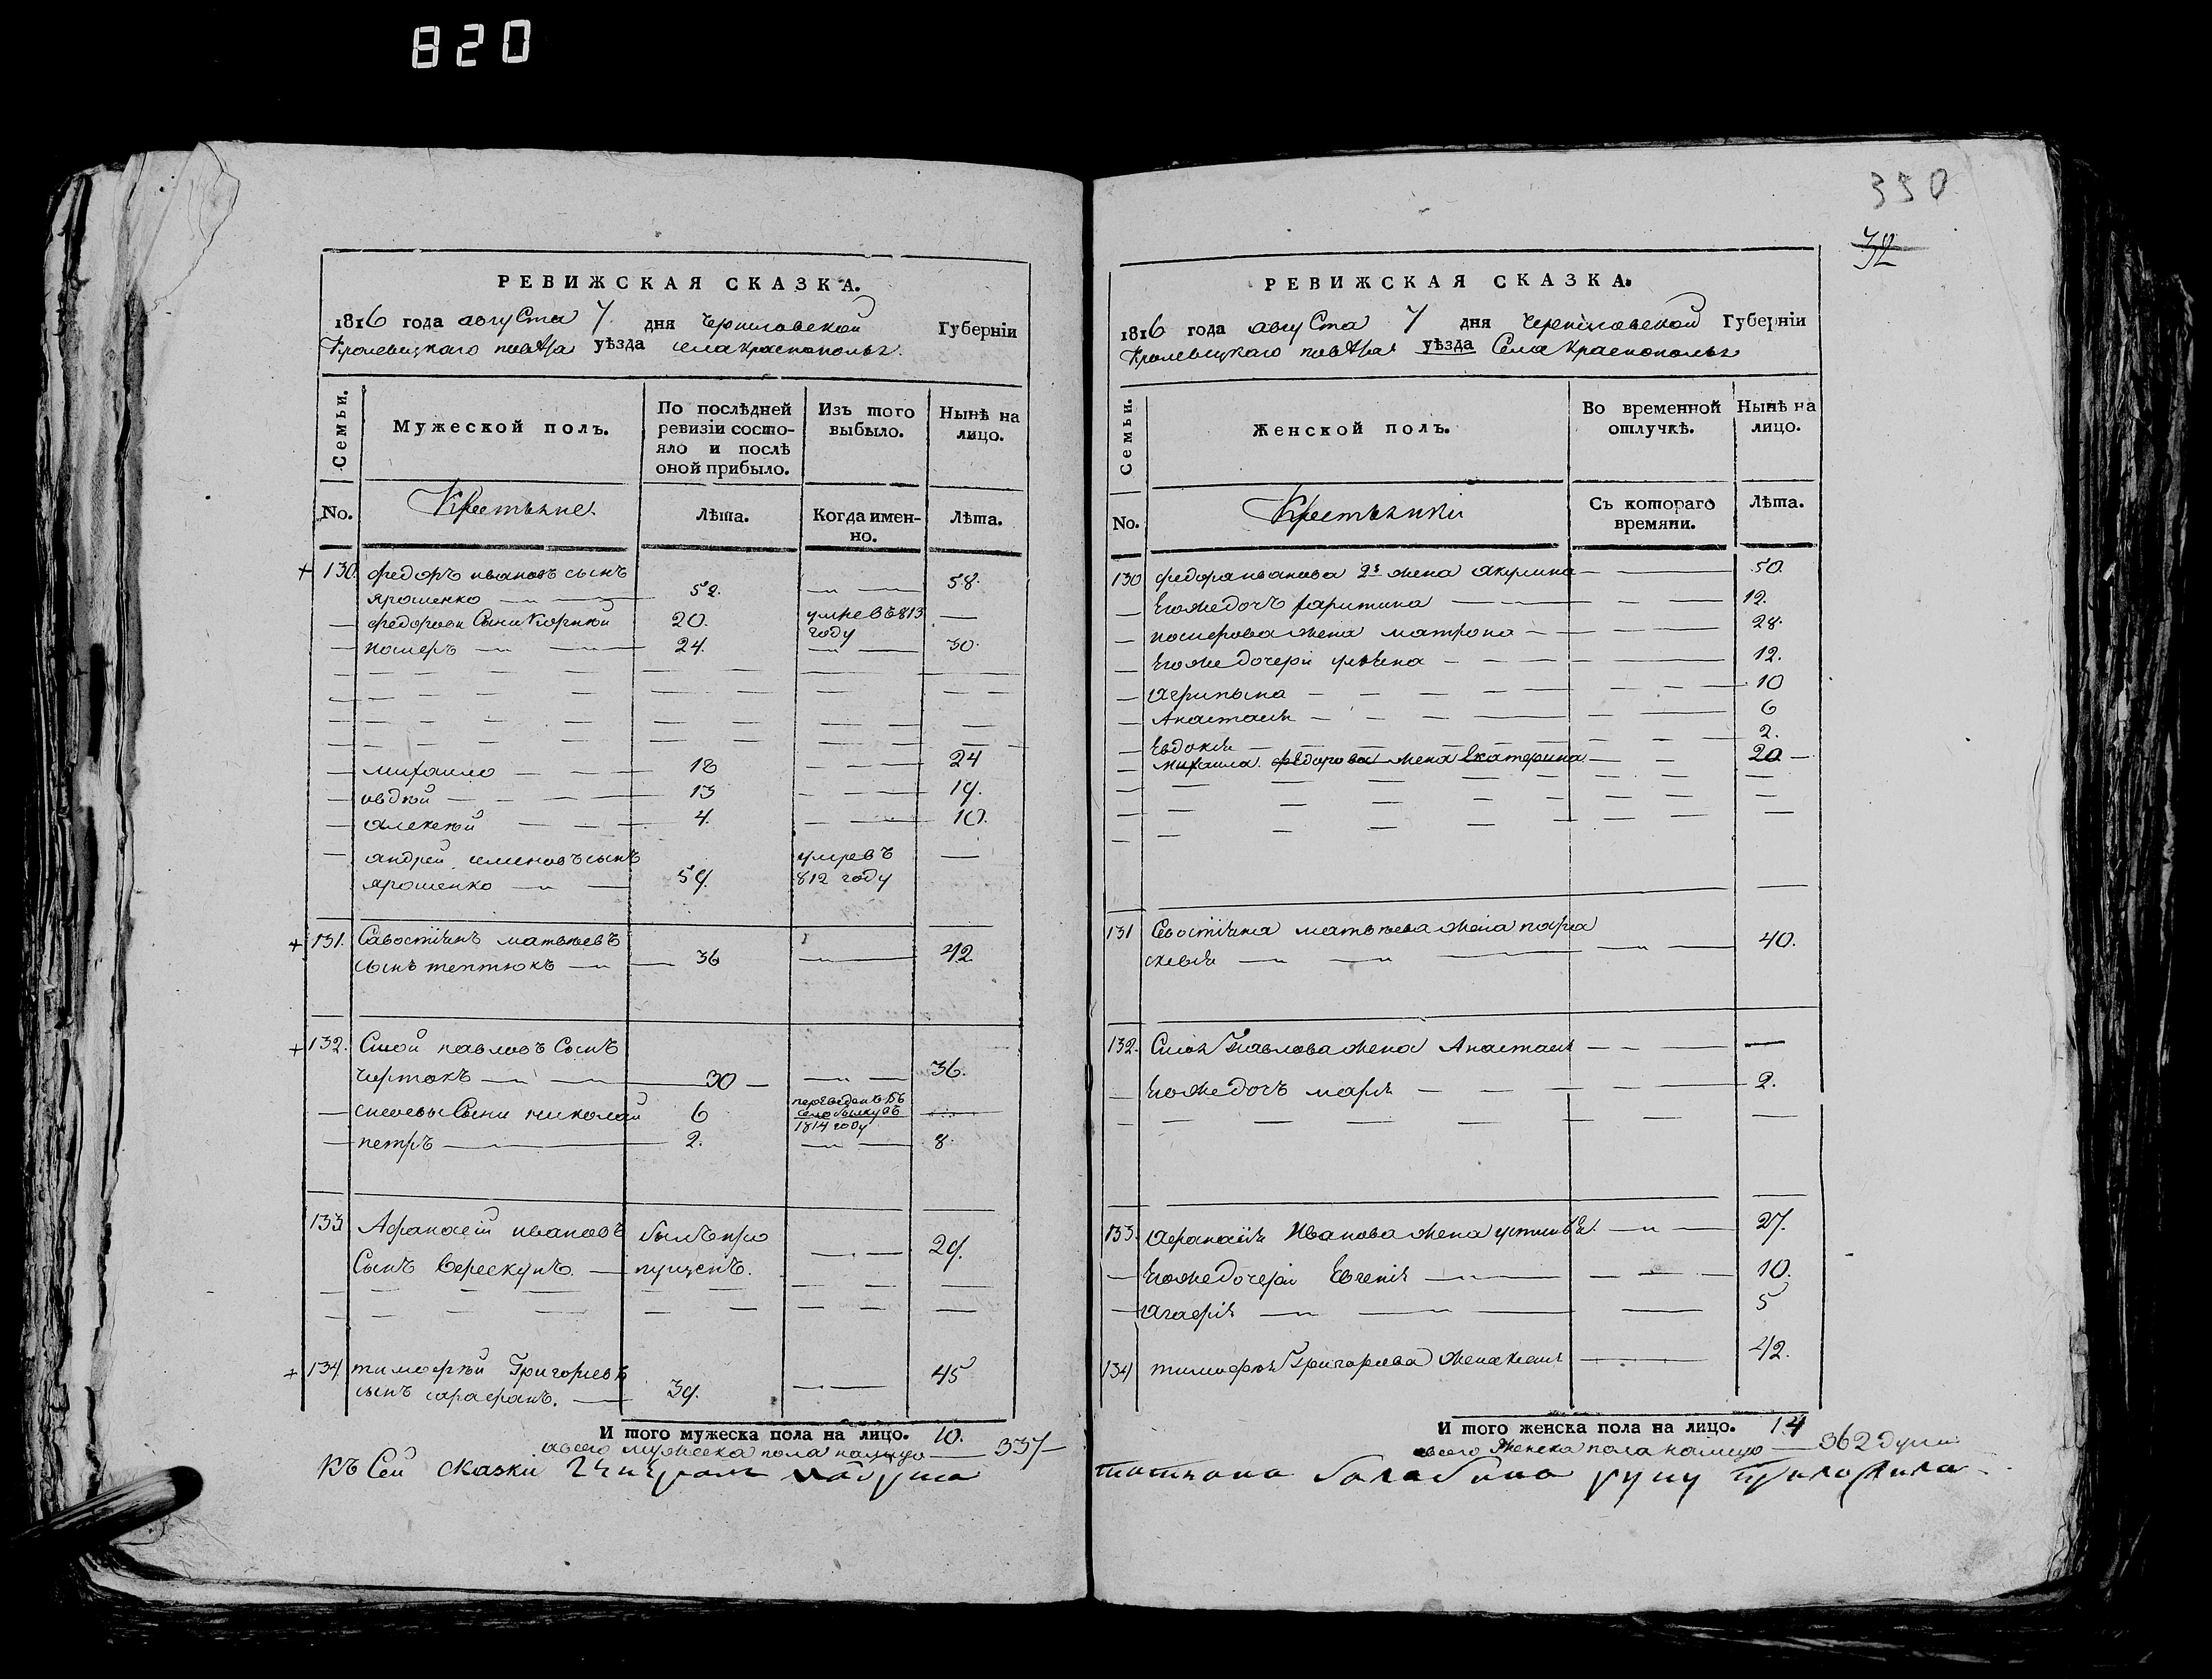 820
РЕВИЖСКАЯ СКАЗКА.
1816 года августа 7 дня черниговской Губерніи
Кролевецкаго повѣта уѣзда села краснополья
Семьи.
Мужеской полъ.
По послѣдней ревизіи состо-
яло и послѣ
оной прибыло.
Изъ того
выбыло.
Нынѣ на
лицо.
No.
Крестьяне
Лѣта.
Когда имен-
но.
Лѣта.
+ 130. федоръ ивановъ сынъ
ярошенко 52. 58.
федорови Сыни Корнѣй 20. умре въ 813
году
24. 30.
михаило 18 24
овдѣй 13 19.
алексѣй 4. 10.
андрей семеновъ сынъ умре въ
ярошенко 59. 812 году
+ 131. Савостіянъ матвѣевъ
сынъ тептюкъ 36 42
+ 132. Сисой павловъ Сынъ
чертокъ 30 36.
сисоевы Сыни николай 6 переведенъ въ
село
1814 году
петръ 2. 8.
133 Афанасій ивановъ былъ про
Сынъ Верескунъ. пущенъ. 29.
+ 134 тимофѣй Григорьевъ
сынъ сарафанъ. 39. 45
И того мужеска пола на лицо. 10.
а всего мужеска пола налицо 337
350
32
РЕВИЖСКАЯ СКАЗКА.
1816 года августа 7 дня черниговской Губерніи
Кролевецкаго повѣта уѣзда Села краснополья
Семьи.
Женской полъ.
Во временной
отлучкѣ.
Нынѣ на
лицо.
No.
Крестьянки
Съ котораго
времяни.
Лѣта.
130 федора иванова 2я жена акулина 50.
Егоже дочъ харитина 12.
жена матрона 28.
Егоже дочери улияна 12.
Агрипына 10
Анастасия 6
Евдокия 2.
михаила федорова жена Екатерина 20
131 Севостіяна матвѣева жена пара
скевия 40.
132. Сисоя Павлова жена Анастасия
Егоже дочъ мария 2.
133. афанасія Иванова жена устиния 27.
Егоже дочери Евгения 10.
Агафия 5
134 тимофѣя Григорьева жена 42.
И того женска пола на лицо. 14
а всего женска пола налицо 362 души
Къ Сей сказки
татіяна балабина руку приложила